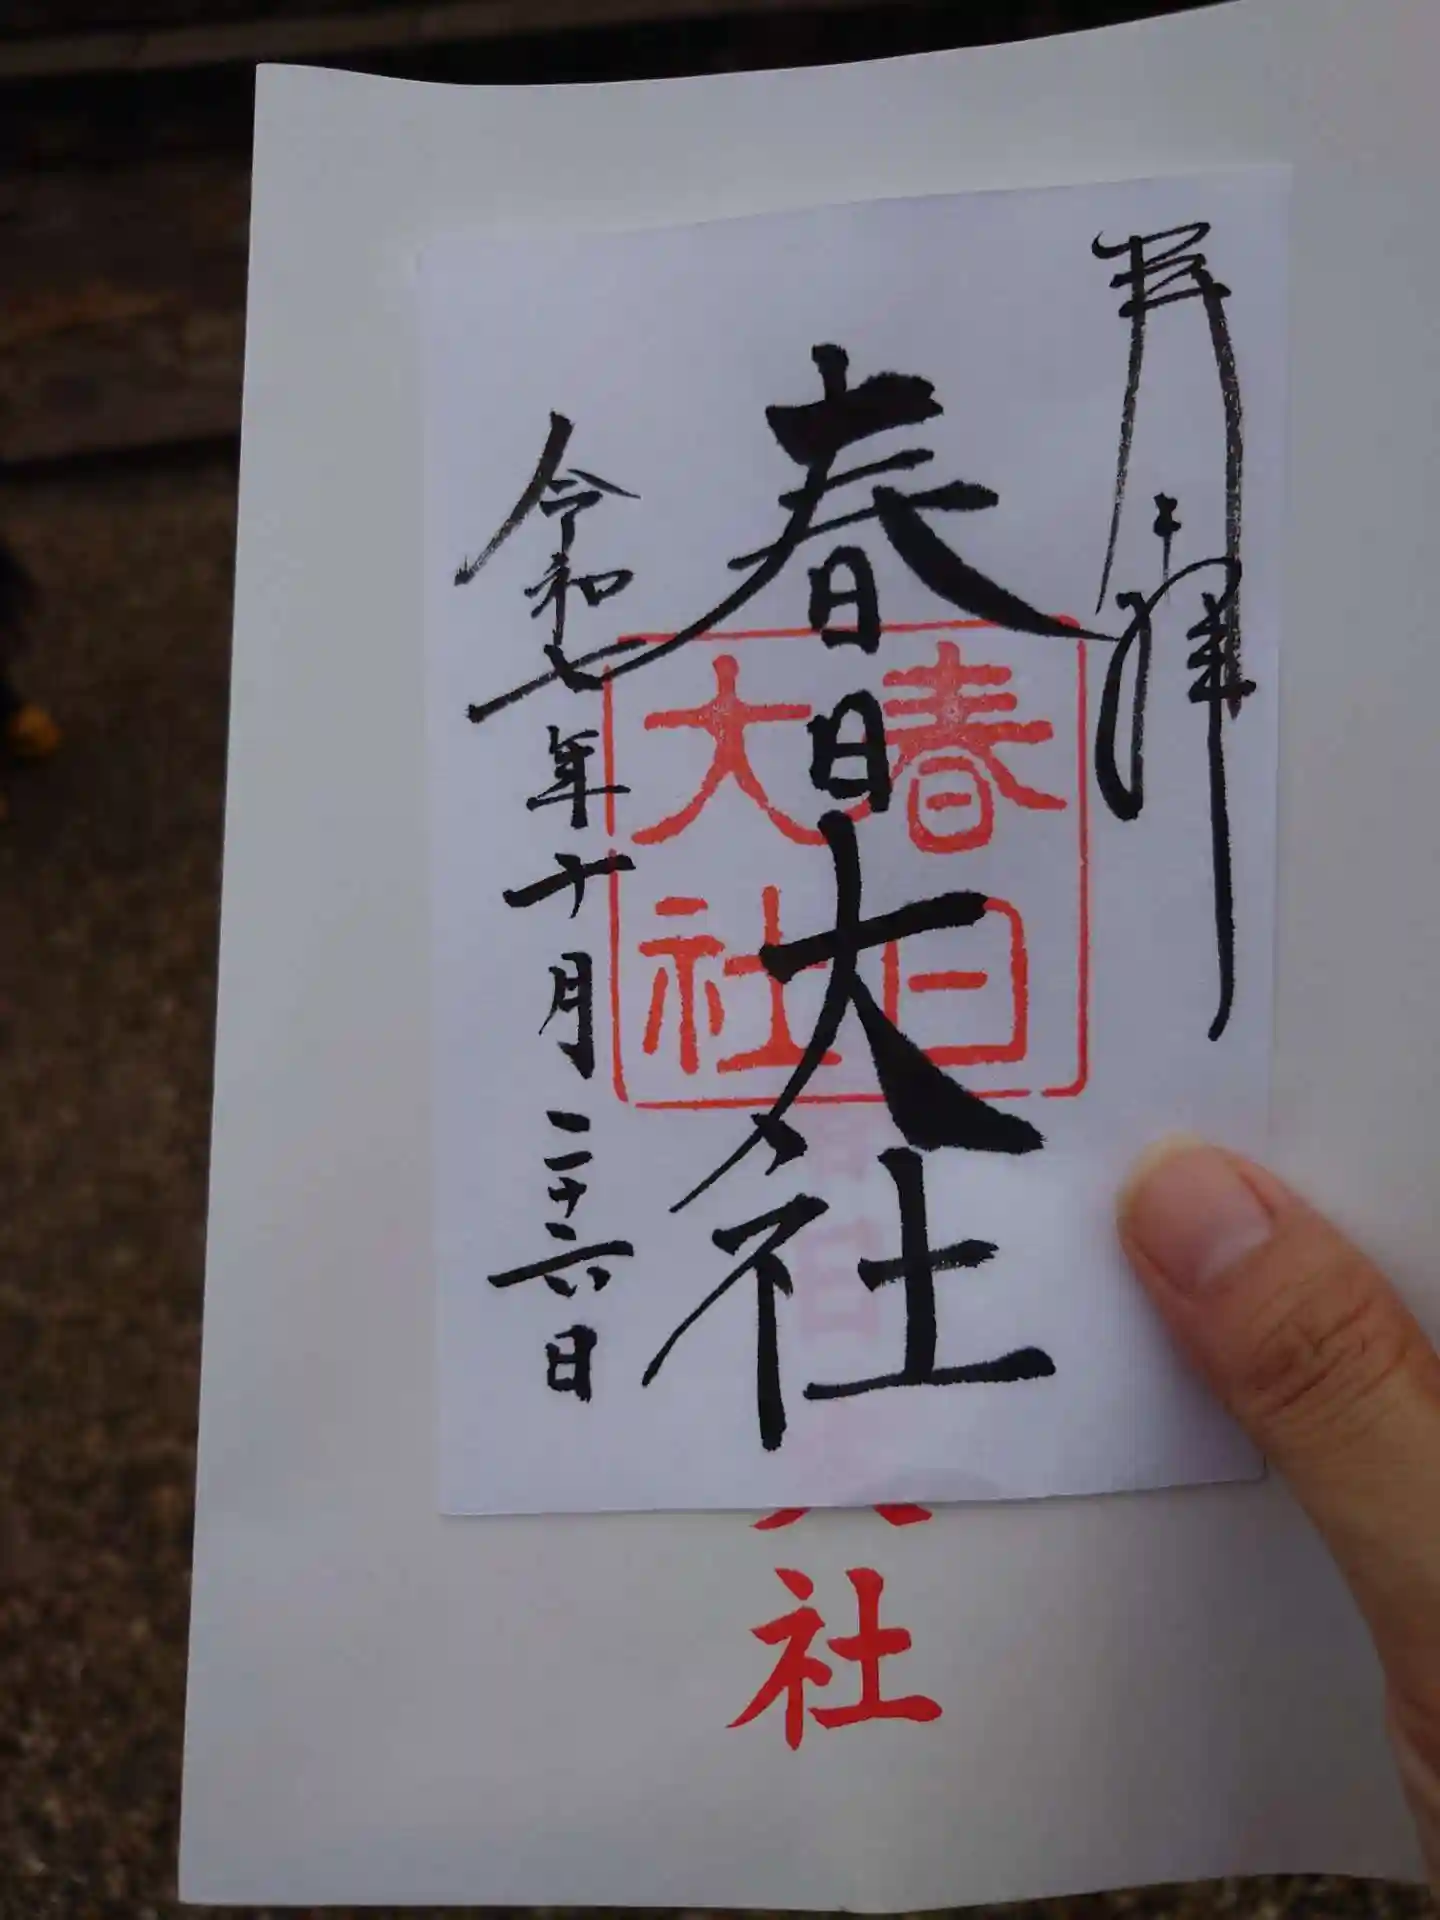 奉拝
春日大社
令和七年十月二十六日
春日
大社
社